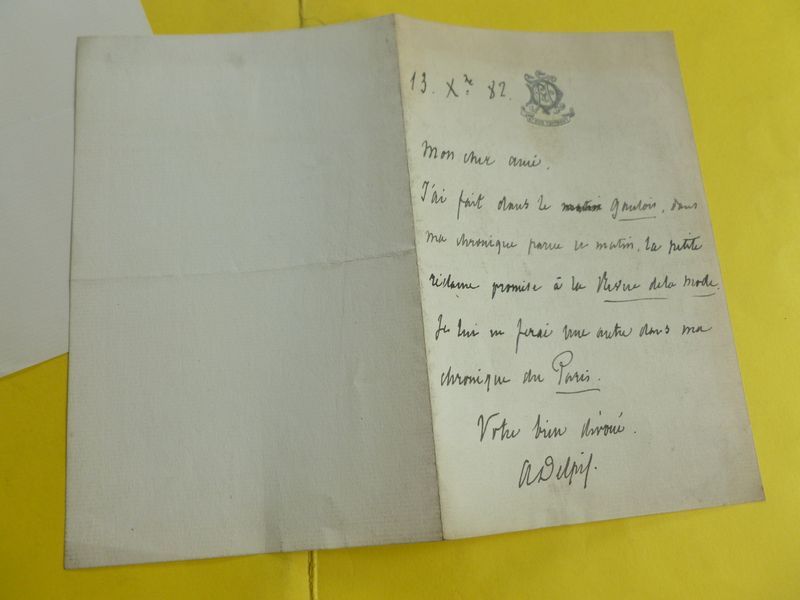 13. Xre 82.
Mon cher ami.
J'ai fait dans le matin Gaulois, dans
ma chronique parue ce matin, la petite
réclame promise à la Revue de la Mode.
Je lui en ferai une autre dans ma
chronique du Paris.
Votre bien dévoué.
ADelpit.